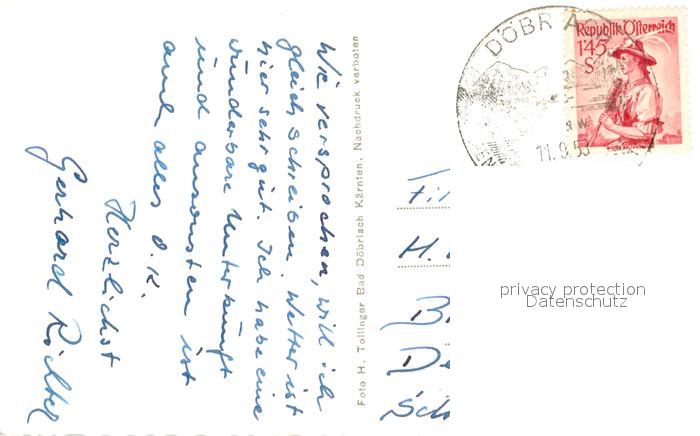 Wie versprochen, will ich
gleich schreiben. Wetter ist
hier sehr gut. Ich habe eine
wunderbare Unterkunft
und ansonsten ist
auch alles O.K.
Herzlichst
Gerhard Richter
Foto H. Tollinger Bad Döbriach Kärnten. Nachdruck verboten
DÖBRIAC
11.9.53
Republik Österreich
1'45
S
Fir
H.
B
D
Sch
privacy protection
Datenschutz